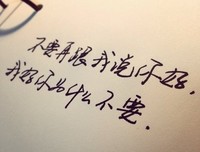 不要再跟我说你好,
我好你为什么不要.